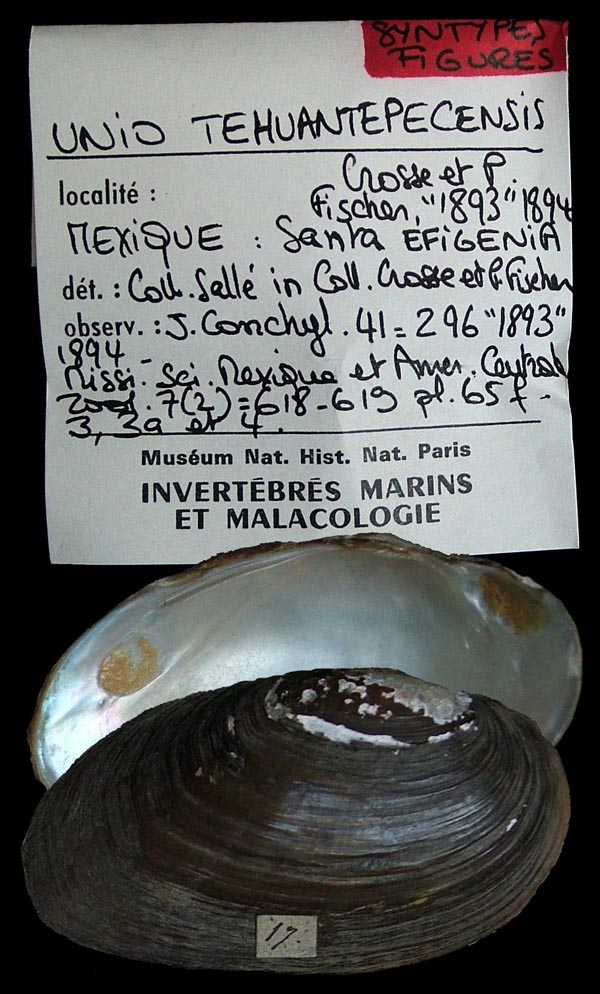 SYNTYPES
FIGURES
UNIO TEHUANTEPECENSIS
Crosse et P.
localité :
Fischer, "1893" 1894
MEXIQUE : Santa EFIGENIA
dét. : Coll. Sallé in Coll. Crosse et P. Fischer
observ. : J. Conchyl. 41 = 296 "1893"
1894 -
Missi. Sci. Mexique et Amer. Central
Zool. 7(2) = 618-619 pl. 65 f -
3, 3a et 4.
Muséum Nat. Hist. Nat. Paris
INVERTÉBRÉS MARINS
ET MALACOLOGIE
17.